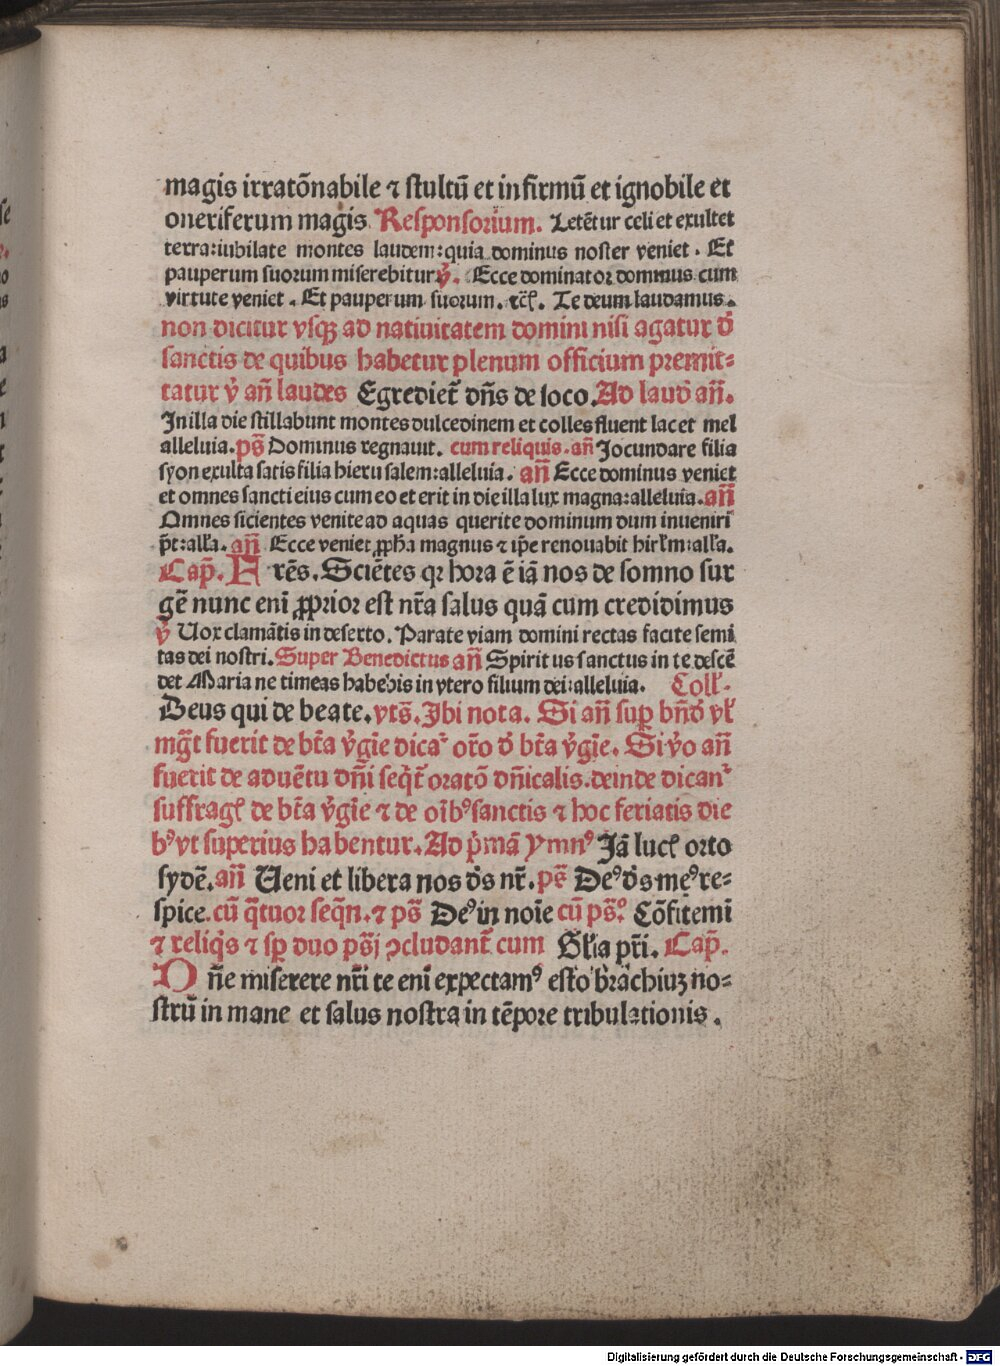 magis irratōnabile ⁊ stultū et infirmū et ignobile et
oneriferum magis Responsorium. Letētur celi et exultet
terra:iubilate montes laudem:quia dominus noster veniet. Et
pauperum suorum miserebitur v̄. Ecce dominator dominus cum
virtute veniet. Et pauperum suorum. ⁊c̄. Te deum laudamus.
non dicitur vsqꝫ ad natiuitatem domini nisi agatur d̄
sanctis de quibus habetur plenum officium premit-
tatur v̄ an̄ laudes Egrediet᷑ dn̄s de loco. Ad laud̄ an̄.
In illa die stillabunt montes dulcedinem et colles fluent lac et mel
alleluia. ps̄ Dominus regnauit. cum reliquis. an̄ Jocundare filia
syon exulta satis filia hierusalem:alleluia. an̄ Ecce dominus veniet
et omnes sancti eius cum eo et erit in die illa lux magna:alleluia. an̄
Omnes sicientes venite ad aquas querite dominum dum inueniri
p̄t:all̄a. an̄ Ecce veniet ꝓph̄a magnus ⁊ ip̄e renouabit hirl̄m:all̄a.
Cap̄. Fr̄es. Sciētes qꝛ hora ē iā nos de somno sur
gē nunc enī ꝓprior est nr̄a salus quā cum credidimus
v̄ Uox clamātis in deserto. Parate viam domini rectas facite semi
tas dei nostri. Super Benedictus an̄ Spiritus sanctus in te descē
det Maria ne timeas habebis in vtero filium dei:alleluia. Coll̄.
Deus qui de beate. vts̄. Ibi nota. Si an̄ sup̄ bn̄d̄ vl̄
mḡt fuerit de bt̄a v̄gīe dicaᷣ or̄o d̄ bt̄a v̄gīe. Si v̄o an̄
fuerit de aduētu dn̄i seq̄t᷑ oratō dn̄icalis. deinde dicanᷣ
suffraḡ de bt̄a v̄gīe ⁊ de oībꝰ sanctis ⁊ hoc feriatis die
bꝰ vt superius habentur. Ad p̄mā ymnꝰ Jā lucꝭ orto
sydē. an̄ Ueni et libera nos d̄s nr̄. ps̄ Deꝰ d̄s meꝰ re-
spice. cū q̄tuor seq̄n. ⁊ ps̄ Deꝰ in noīe cū ps̄ꝰ Cōfitemi
⁊ reliq̄s ⁊ sp̄ duo ps̄i ꝯcludant᷑ cum Gl̄ia pr̄i. Cap̄.
Dn̄e miserere nr̄i te enī expectamꝰ esto brachiuꝫ no-
strū in mane et salus nostra in tēpore tribulationis.
Digitalisierung gefördert durch die Deutsche Forschungsgemeinschaft - DFG